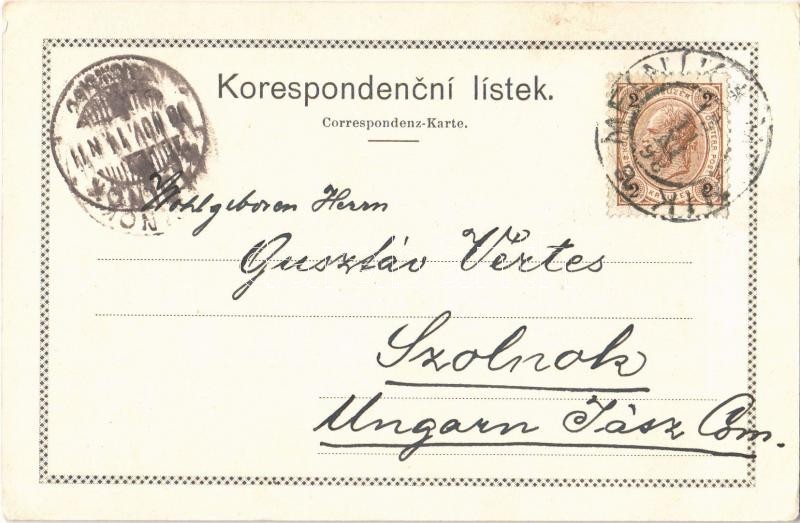 Korespondenční lístek.
Correspondenz-Karte.
2 2
2 2
Wohlgeboren Herrn
Gusztáv Vértes
Szolnok
Ungarn Jász Com.